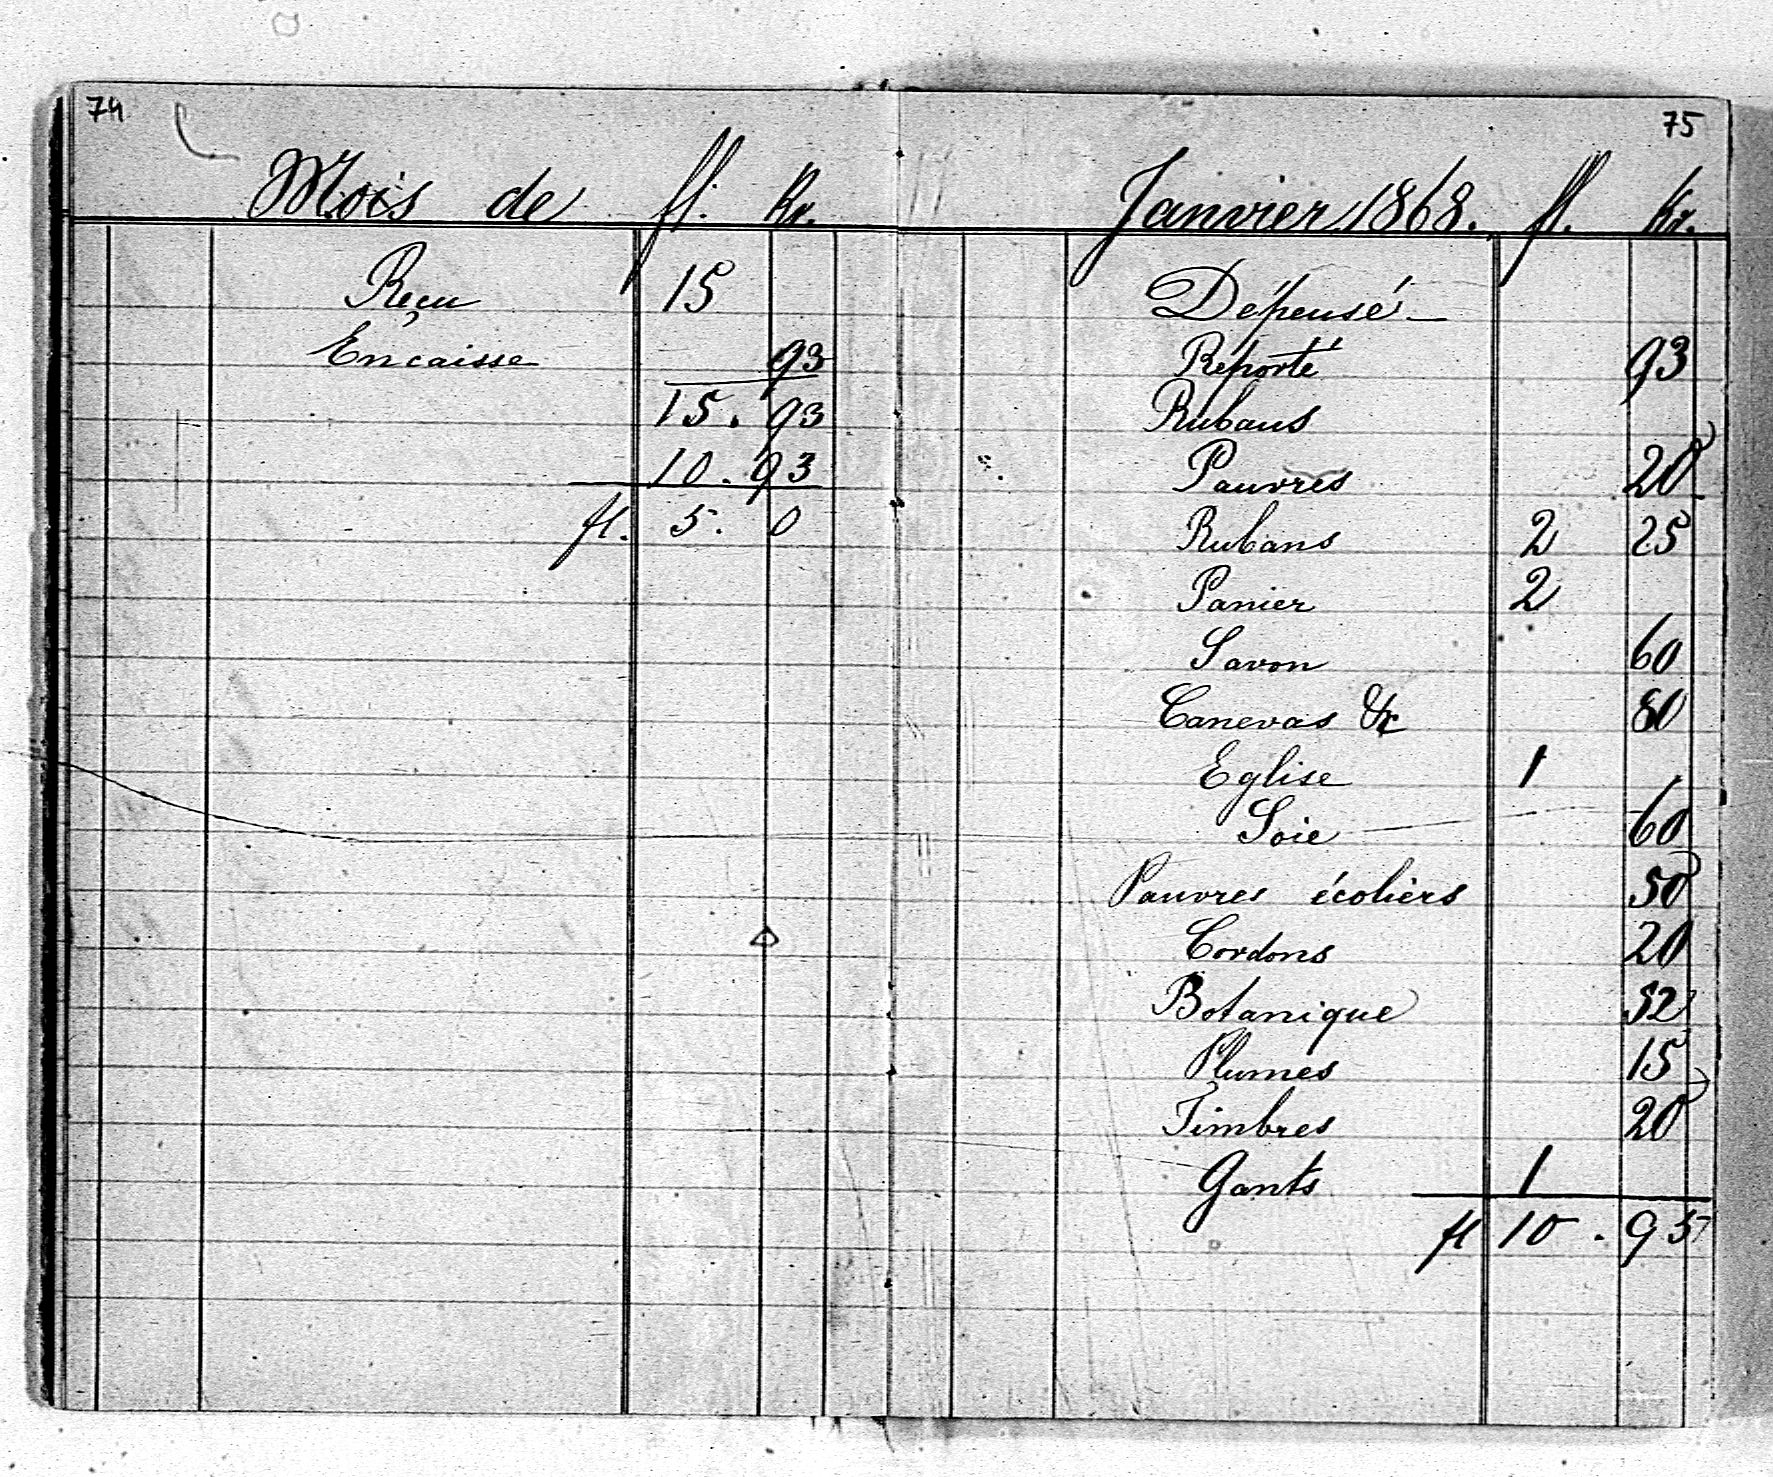 74
Mois de fl. Kr.
Reçu 15
Encaisse 93
15. 93
10. 93
fl. 5. 0
75
Janvier 1868. fl. Kr.
Dépensé
Reporté 93
Rubans
Pauvres 20
Rubans 2 25
Panier 2
Savon 60
Canevas &c 80
Eglise 1
Soie 60
Pauvres écoliers 50
Cordons 20
Botanique 52
Plumes 15
Timbres 20
Gants 1
fl 10. 95